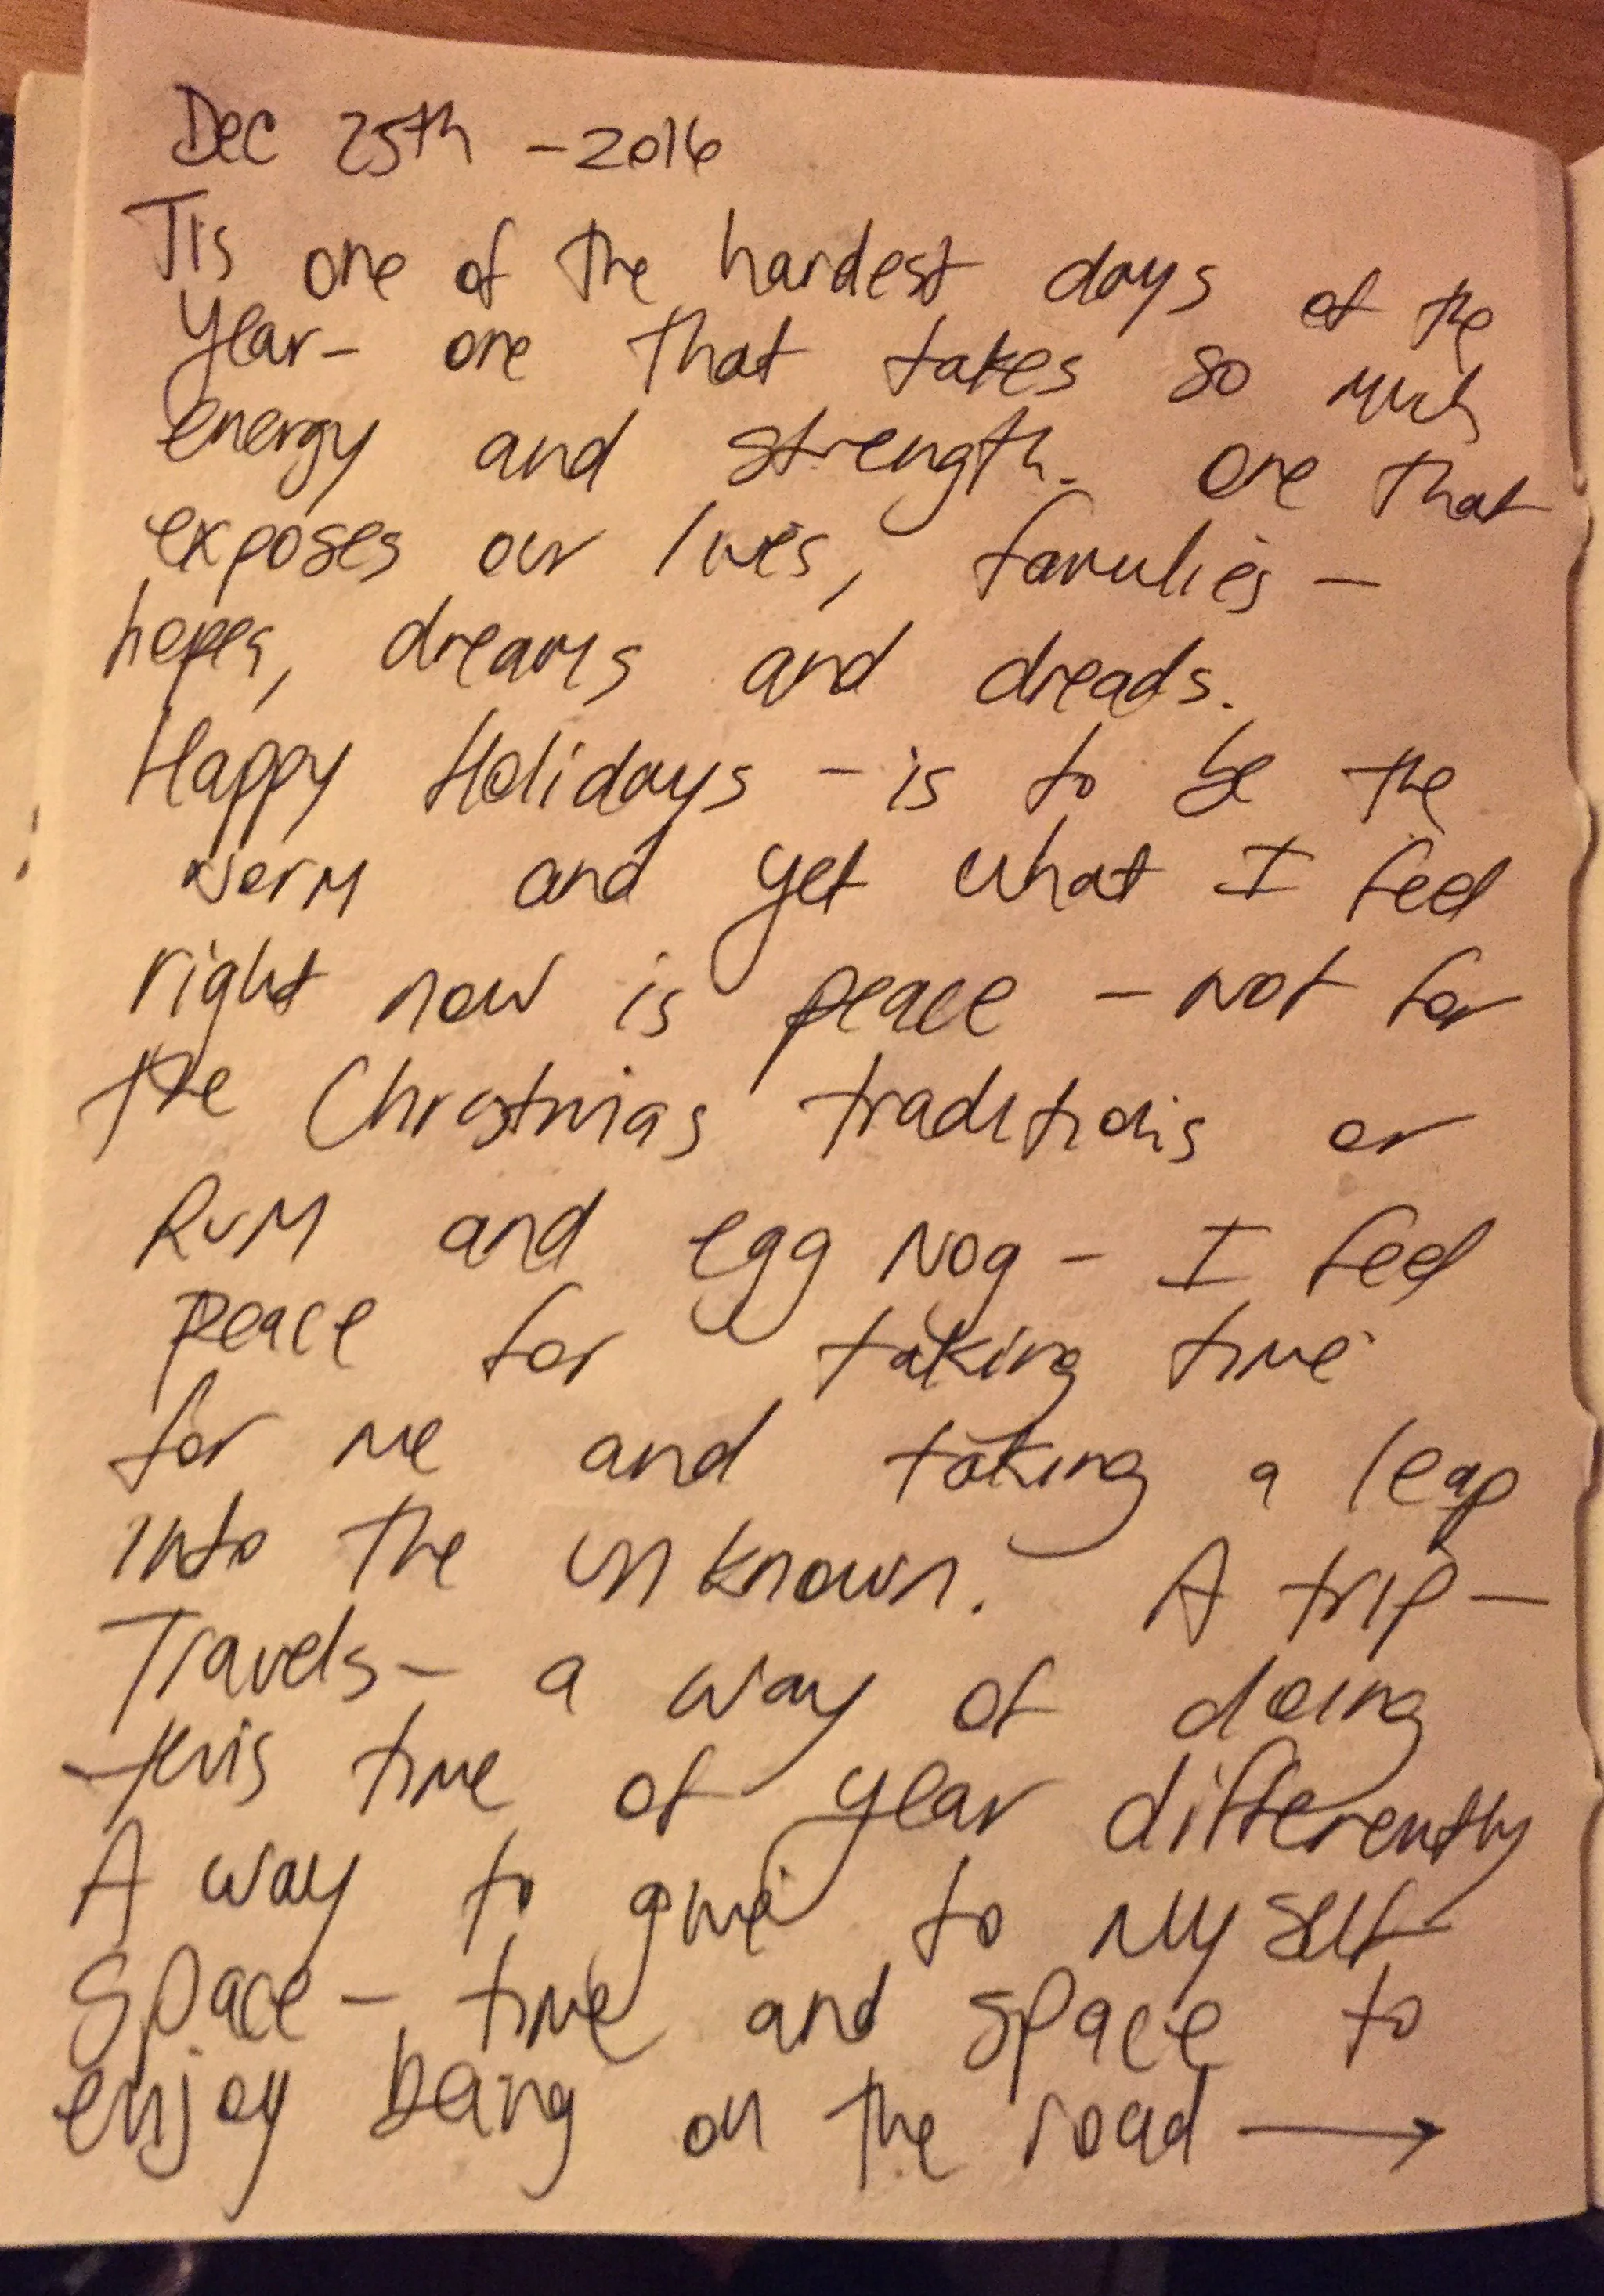 Dec 25th - 2016
Tis one of the hardest days of the
year - one that takes so much
energy and strength. One that
exposes our lives, families -
hopes, dreams and dreads.
Happy Holidays - is to be the
norm and yet what I feel
right now is peace - not for
the Christmas traditions or
Rum and egg Nog - I feel
peace for taking time
for me and taking a leap
into the unknown. A trip -
Travels - a way of doing
this time of year differently
A way to give to myself
Space - time and space to
enjoy being on the road →